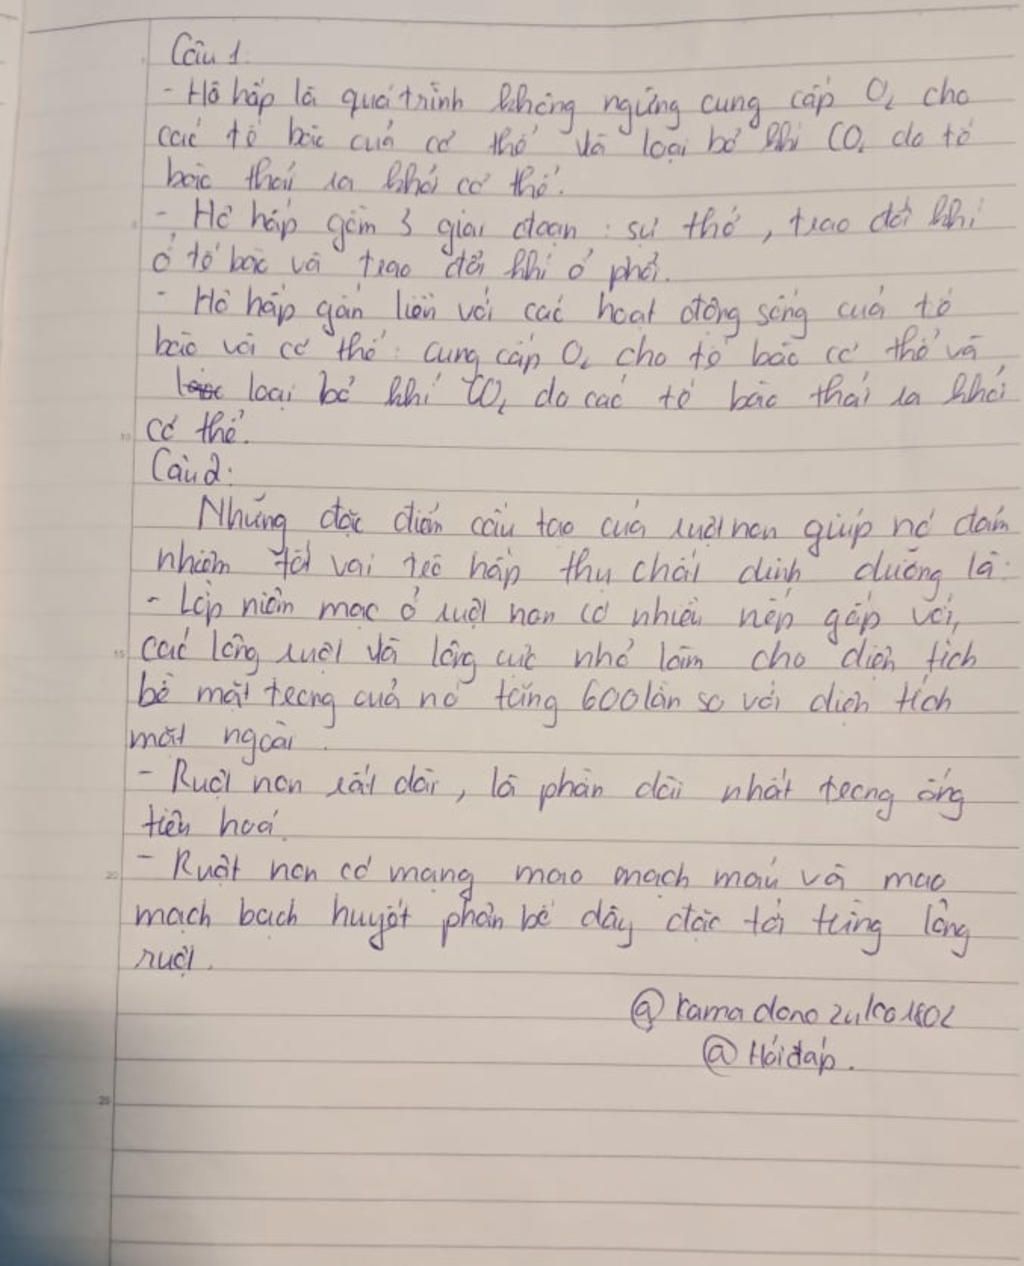 Câu 1:
- Hô hấp là quá trình không ngừng cung cấp O₂ cho
các tế bào của cơ thể và loại bỏ khí CO₂ do tế
bào thải ra khỏi cơ thể.
- Hô hấp gồm 3 giai đoạn : sự thở , trao đổi khí
ở tế bào và trao đổi khí ở phổi.
- Hô hấp gắn liền với các hoạt động sống của tế
bào với cơ thể : cung cấp O₂ cho tế bào cơ thể và
loại bỏ khí CO₂ do các tế bào thải ra khỏi
cơ thể.
Câu 2:
Những đặc điểm cấu tạo của ruột non giúp nó đảm
nhiệm tốt vai trò hấp thụ chất dinh dưỡng là:
- Lớp niêm mạc ở ruột non có nhiều nếp gấp với,
các lông ruột và lông cực nhỏ làm cho diện tích
bề mặt trong của nó tăng 600 lần so với diện tích
mặt ngoài.
- Ruột non rất dài, là phần dài nhất trong ống
tiêu hoá.
- Ruột non có mạng mao mạch máu và mao
mạch bạch huyết phân bố dày đặc tới từng lông
ruột.
@
@ Hỏi đáp.